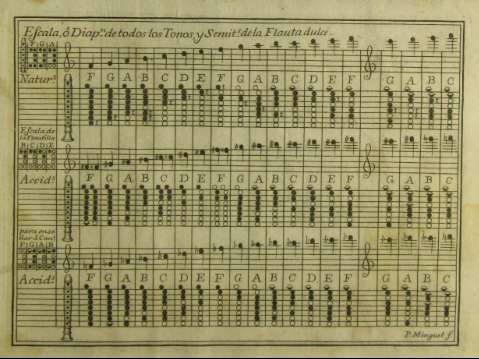 Escala, ó Diap.ⁿ de todos los Tonos, y Semit.ˢ de la Flauta dulce.
F G A
Natur.ˢ F G A B C D E F G A B C D E F G A B C
Escala de
B C D E
Accid.ˢ F G A B C D E F G A B C D E F G A B C
para
F G A B
Accid.ˢ F G A B C D E F G A B C D E F G A B C
P. Minguet f.